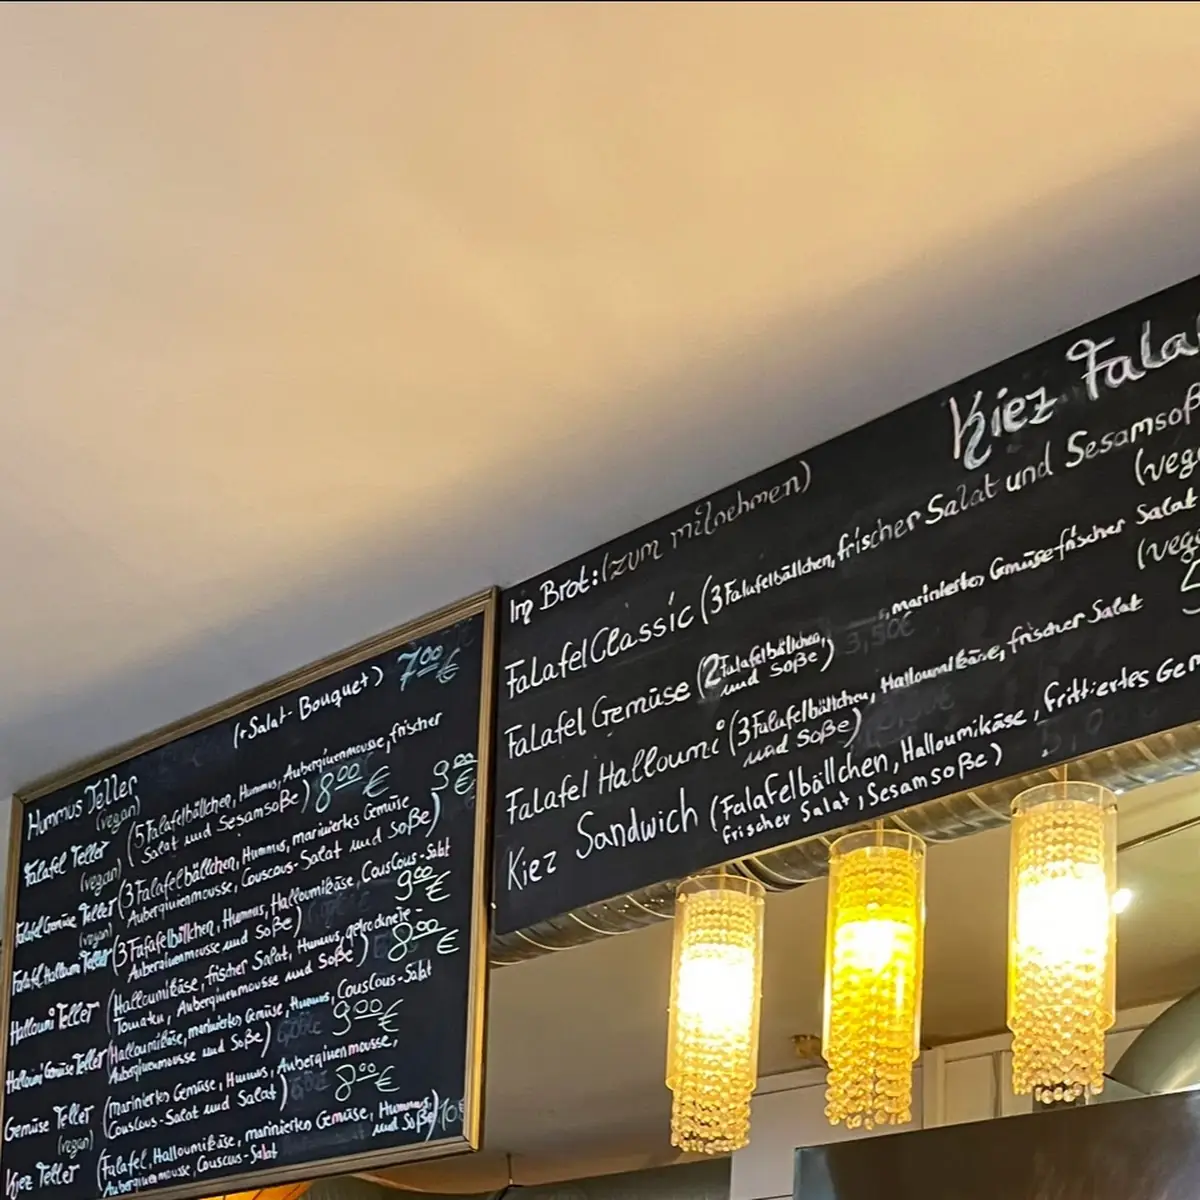 Hummus Teller (+ Salat-Bouquet) 7.00 €
(vegan)
Falafel Teller (5 Falafelbällchen, Hummus, Auberginenmousse, frischer
(vegan) Salat und Sesamsoße) 8.00 €
Falafel Gemüse Teller (3 Falafelbällchen, Hummus, mariniertes Gemüse 9.00 €
(vegan) Auberginenmousse, Couscous-Salat und Soße)
Falafel Halloumi Teller (3 Falafelbällchen, Hummus, Halloumikäse, CousCous-Salat
Auberginenmousse und Soße) 9.00 €
Halloumi Teller (Halloumikäse, frischer Salat, Hummus, getrocknete-
Tomaten, Auberginenmousse und Soße) 8.00 €
Halloumi Gemüse Teller (Halloumikäse, mariniertes Gemüse, Hummus, CousCous-Salat
Auberginenmousse und Soße) 9.00 €
Gemüse Teller (Mariniertes Gemüse, Hummus, Auberginenmousse,
(vegan) Couscous-Salat und Salat) 8.00 €
Kiez Teller (Falafel, Halloumikäse, mariniertes Gemüse, Hummus,
Auberginenmousse, Couscous-Salat und Soße) 10 €
Kiez Fala
Im Brot: (zum mitnehmen)
Falafel Classic (3 Falafelbällchen, frischer Salat und Sesamsoß
(veg
Falafel Gemüse (2 Falafelbällchen, mariniertes Gemüse frischer Salat
und Soße) 3,50€ (veg
Falafel Halloumi (3 Falafelbällchen, Halloumikäse, frischer Salat
und Soße)
Kiez Sandwich (Falafelbällchen, Halloumikäse, frittiertes Gem
frischer Salat, Sesamsoße)